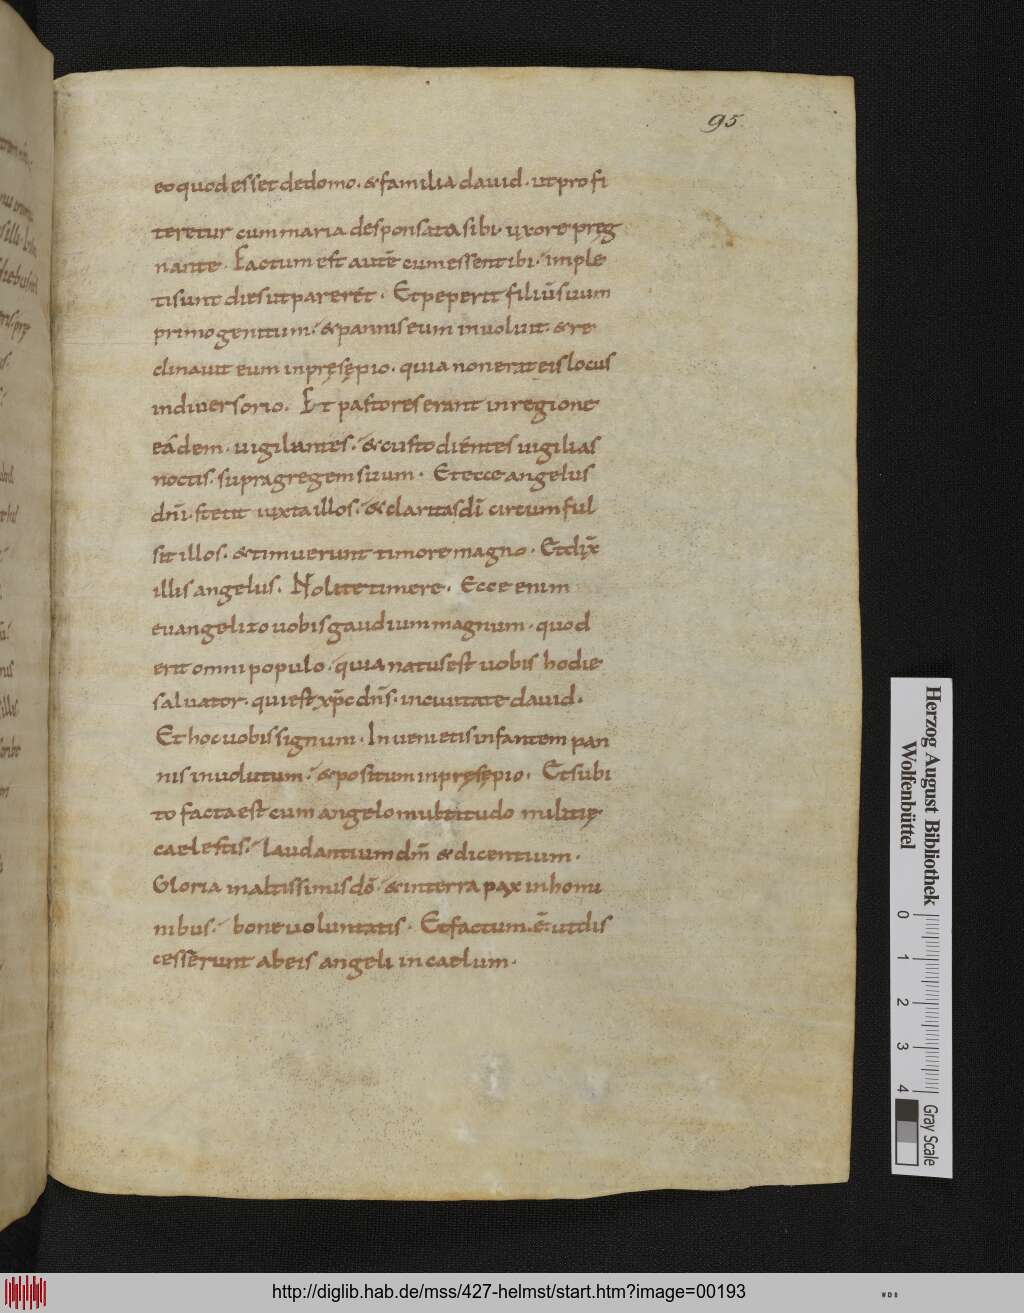 95
eo quod esset dedomo. & familia dauid. ut profi
teretur cum maria desponsata sibi. uxore pręg
nante. Factum est autē cum essent ibi. imple
ti sunt dies ut parerét. Et peperit filiū suum
primogenitum. & pannis eum inuoluit. & re
clinauit eum in pręsępio. quia non erat eis locus
in diuersorio. Et pastores erant in regione
eádem. uigilantes. & custodiéntes uigilias
noctis. supra gregem suum. Et ecce angelus
dn̄i. stetit iuxta illos. & claritas dī circumful
sit illos. & timuerunt timore magno. Et dix̄
illis angelus. Nolite timere. Ecce enim
euangelizo uobis gaudium magnum. quod
erit omni populo. quia natus est uobis hodie
saluator. qui est xp̄c dn̄s. in ciuitate dauid.
Et hoc uobis signum. Inuenietis infantem pan
nis inuolutum. & positum in pręsępio. Et subi
to facta est cum angelo multitudo militię
caelestis. laudantium dm̄ & dicentium.
Gloria in altissimis dō. & in terra pax in homi
nibus. bone uoluntatis. Et factum. ē. ut dis
cessērunt ab eis angeli in caelum.
Herzog August Bibliothek
Wolfenbüttel
0 1 2 3 4
Gray Scale
http://diglib.hab.de/mss/427-helmst/start.htm?image=00193
WDB